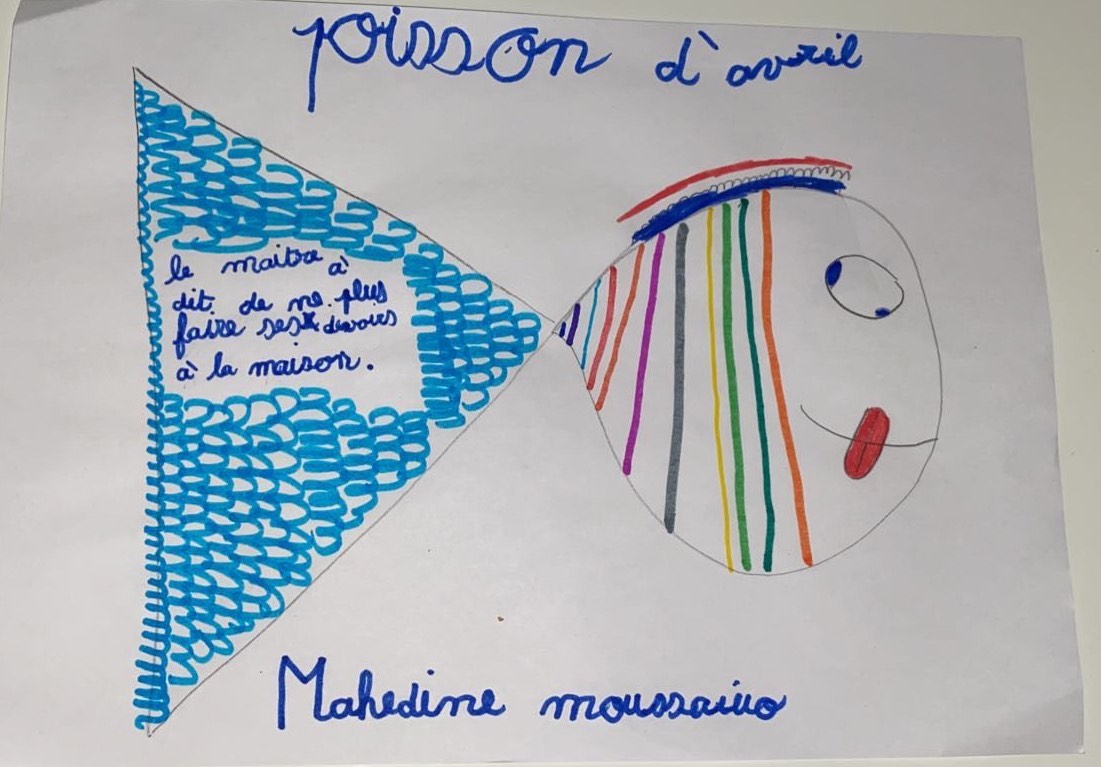 poisson d'avril
le maitre à
dit de ne plus
faire ses devoirs
à la maison.
Mahedine moussaiuo